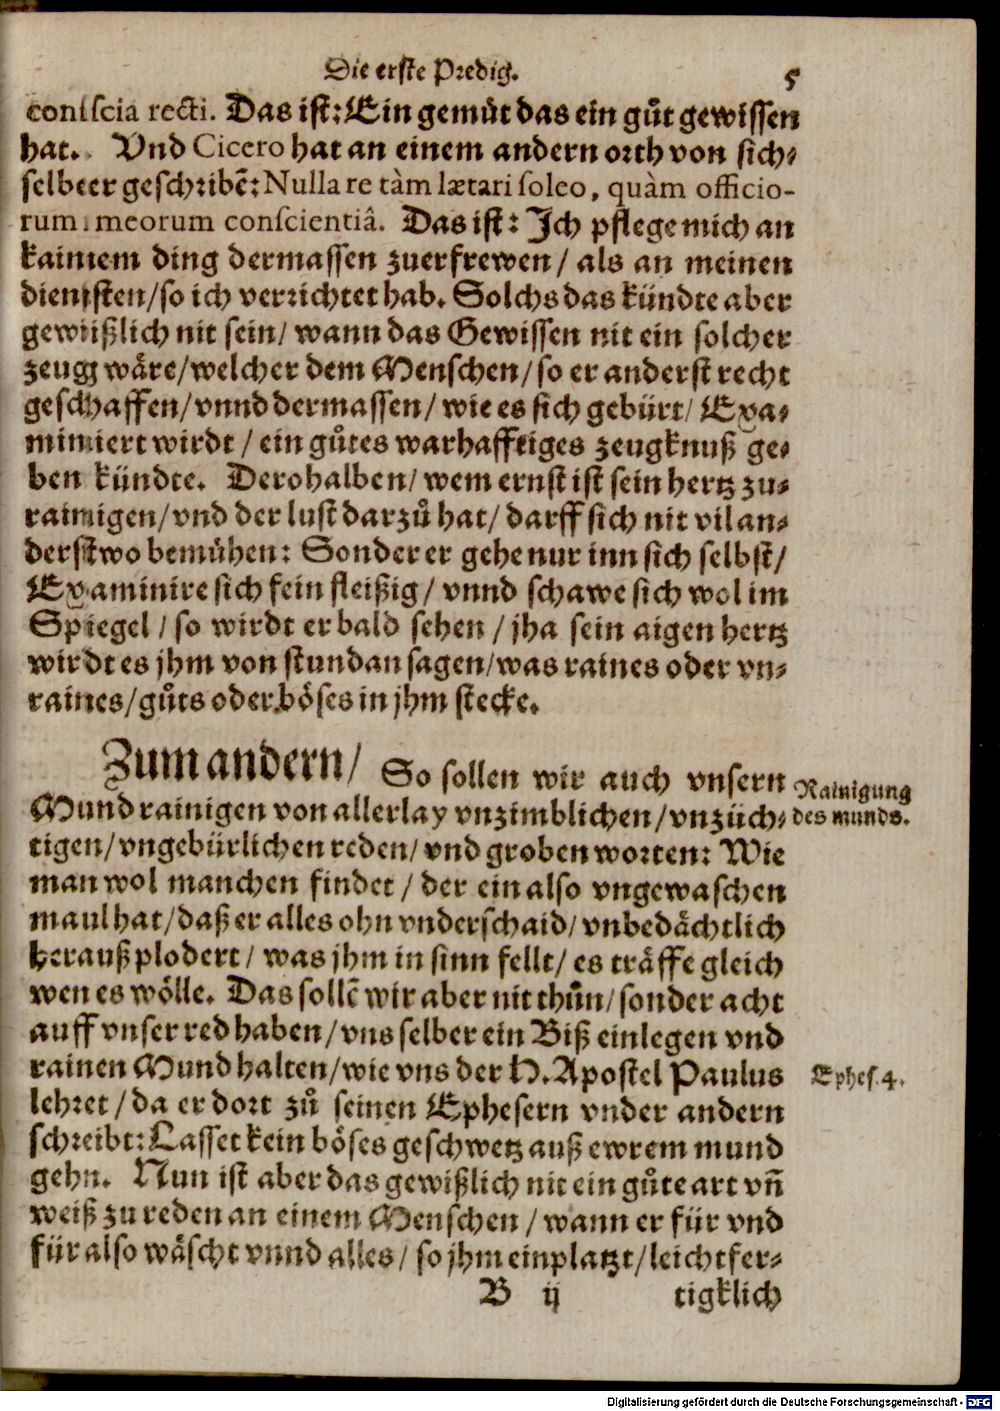 Die erste Predig.
5
conscia recti. Das ist: Ein gemüt das ein gůt gewissen
hat. Vnd Cicero hat an einem andern orth von sich-
selbeer geschribẽ: Nulla re tàm lætari soleo, quàm officio-
rum meorum conscientiâ. Das ist: Ich pflege mich an
kainem ding dermassen zuerfrewen / als an meinen
diensten / so ich verrichtet hab. Solchs das kündte aber
gewißlich nit sein / wann das Gewissen nit ein solcher
zeug wäre / welcher dem Menschen / so er anderst recht
geschaffen / vnnd dermassen / wie es sich gebürt / Exa-
miniert wirdt / ein gůtes warhafftiges zeugknuß ge-
ben kündte. Derohalben / wem ernst ist sein hertz zu-
rainigen / vnd der lust darzů hat / darff sich nit vil an-
derstwo bemühen: Sonder er gehe nur inn sich selbst /
Examinire sich fein fleißig / vnnd schawe sich wol im
Spiegel / so wirdt er bald sehen / jha sein aigen hertz
wirdt es jhm von stundan sagen / was raines oder vn-
raines / gůts oder böses in jhm stecke.
Zum andern / So sollen wir auch vnsern
Mund rainigen von allerlay vnzimblichen / vnzüch-
tigen / vngebürlichen reden / vnd groben worten: Wie
man wol manchen findet / der ein also vngewaschen
maul hat / daß er alles ohn vnderschaid / vnbedächtlich
herauß plodert / was jhm in sinn fellt / es träffe gleich
wen es wölle. Das sollẽ wir aber nit thůn / sonder acht
auff vnser red haben / vns selber ein Biß einlegen vnd
rainen Mund halten / wie vns der H. Apostel Paulus
lehret / da er dort zů seinen Ephesern vnder andern
schreibt: Lasset kein böses geschwetz auß ewrem mund
gehn. Nun ist aber das gewißlich nit ein gůte art vñ
weiß zu reden an einem Menschen / wann er für vnd
für also wäscht vnnd alles / so jhm einplatzt / leichtfer-
B ij tigklich
Rainigung
des munds.
Ephes. 4.
Digitalisierung gefördert durch die Deutsche Forschungsgemeinschaft - DFG